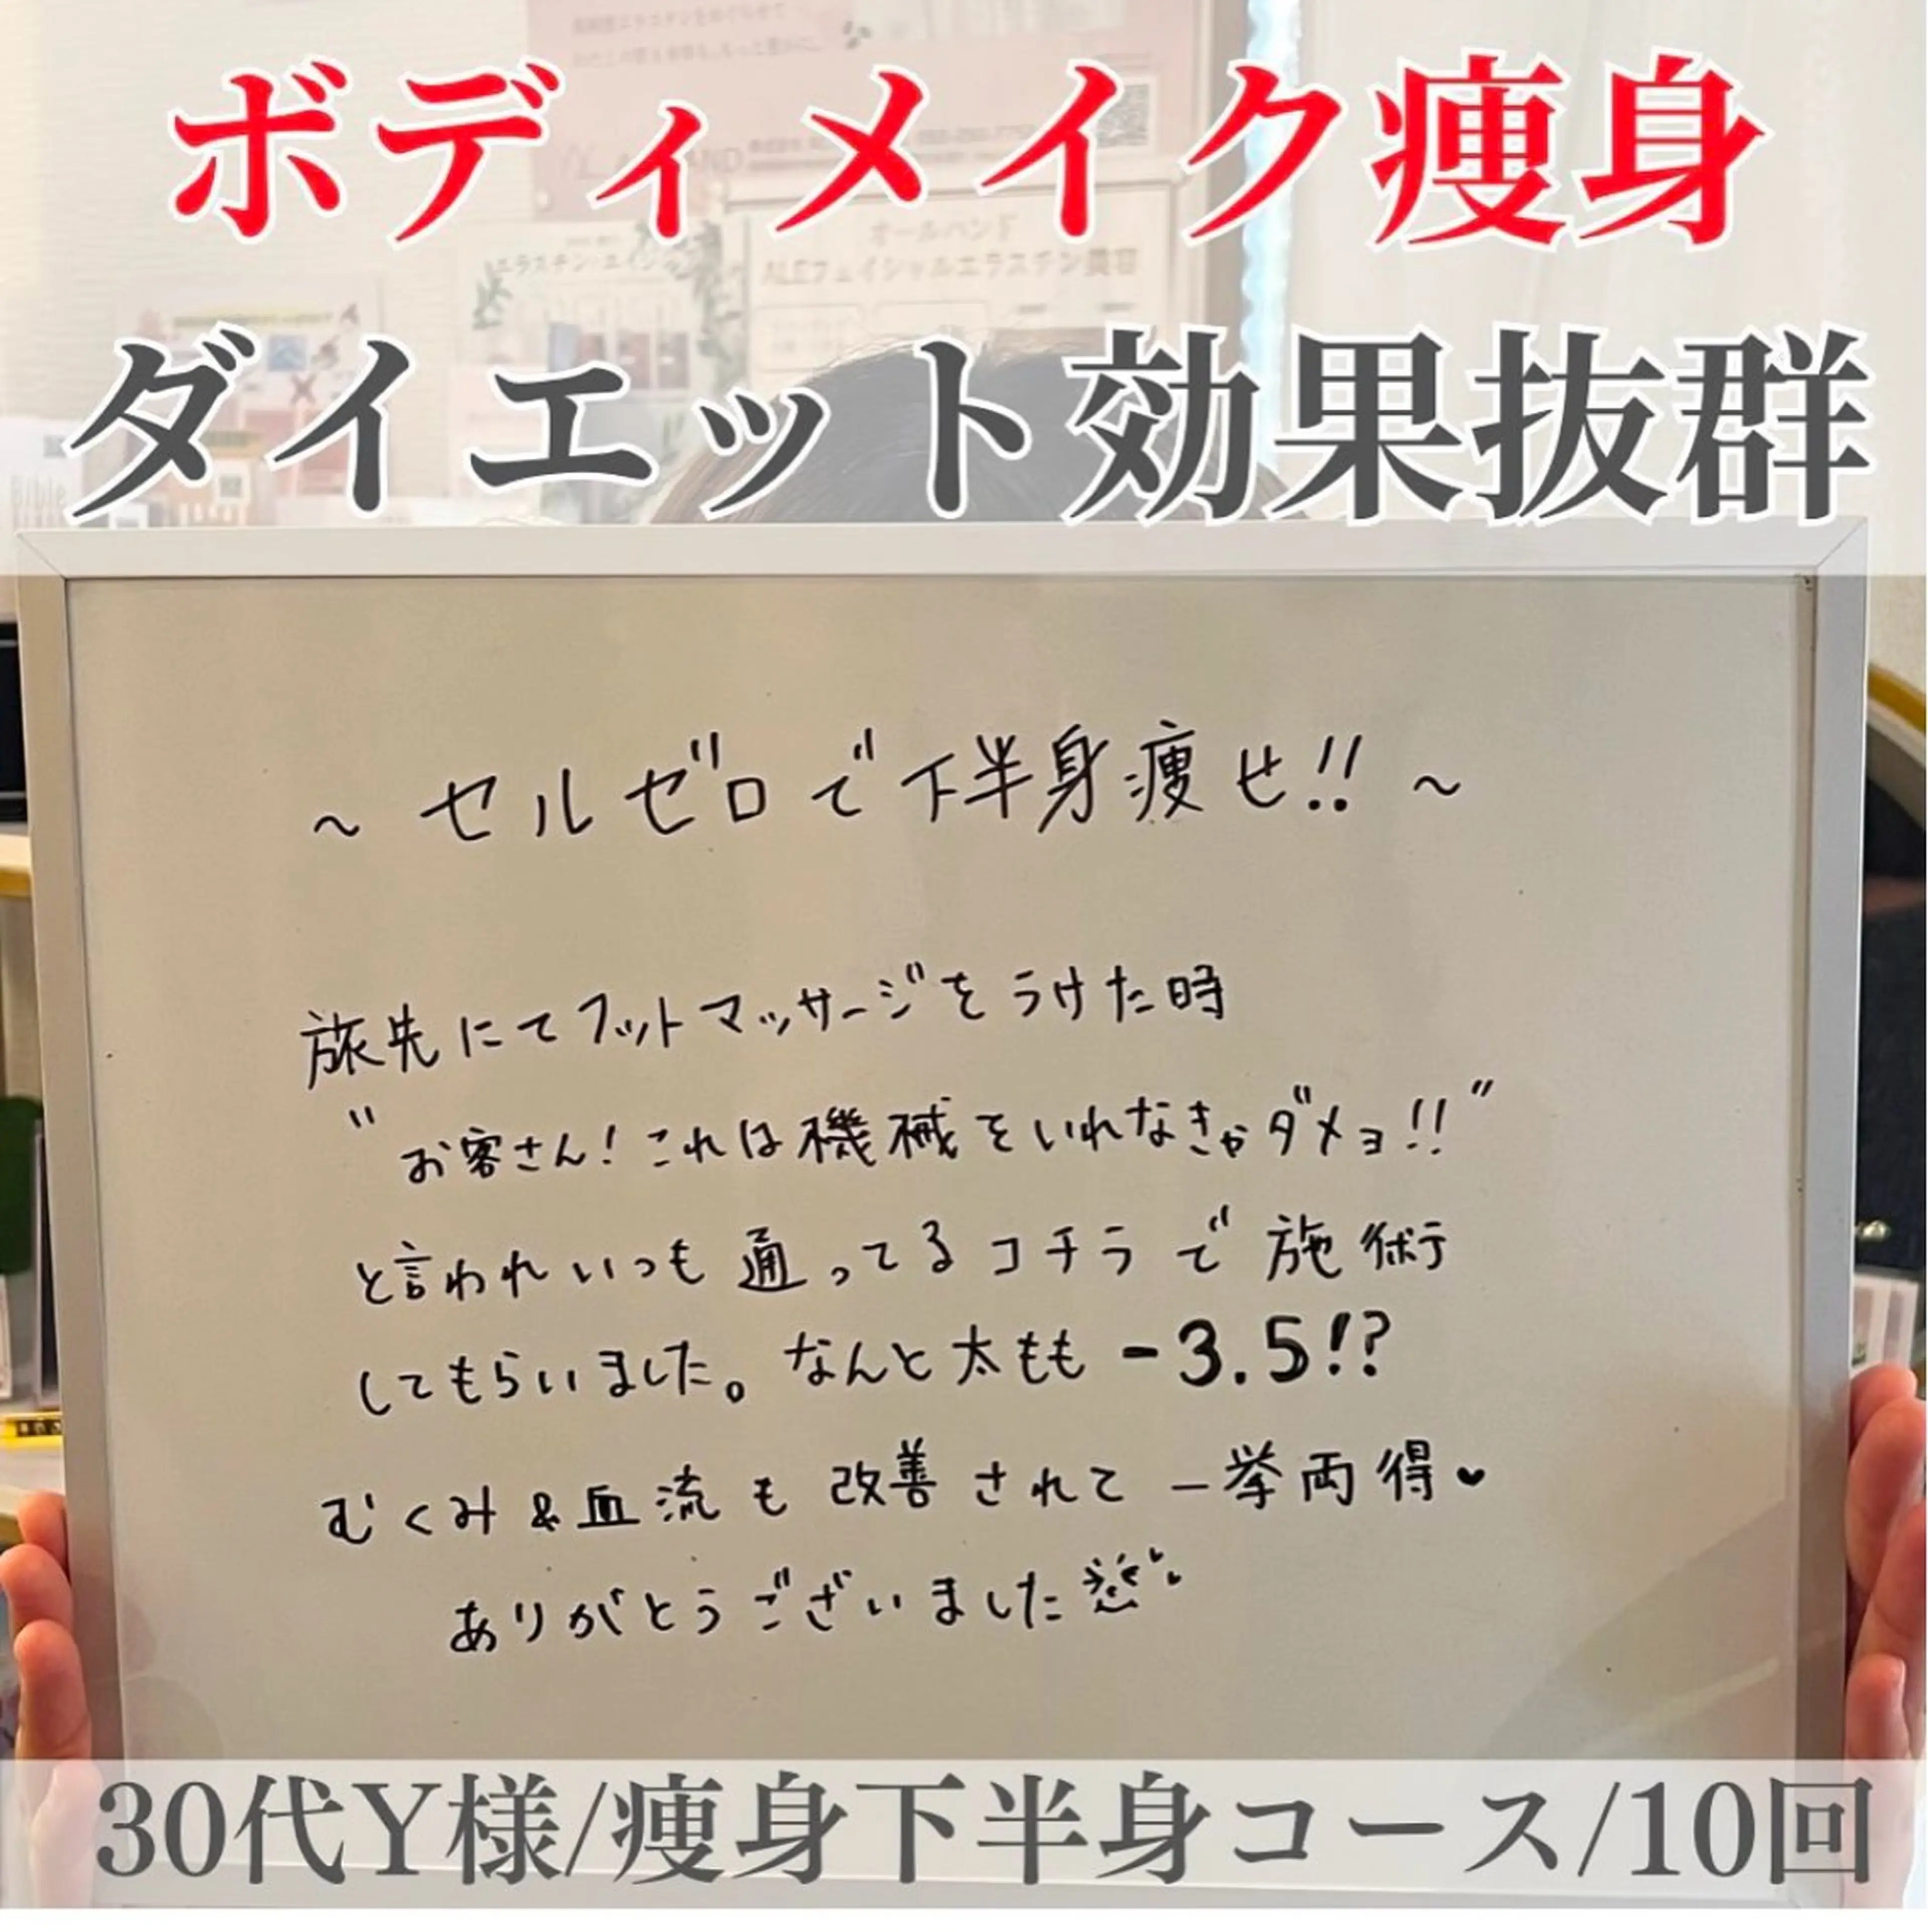 ボディメイク痩身
オールハンド
ALEフェイシャルエラスチン美容
ダイエット効果抜群
Bible
~セルゼロで下半身痩せ!!~
旅先にてフットマッサージをうけた時
"お客さん!これは機械をいれなきゃダメョ!!"
と言われいつも通ってるコチラで施術
してもらいました。なんと太もも-3.5!?
むくみ&血流も改善されて一挙両得♥
ありがとうございました
30代Y様/痩身下半身コース/10回